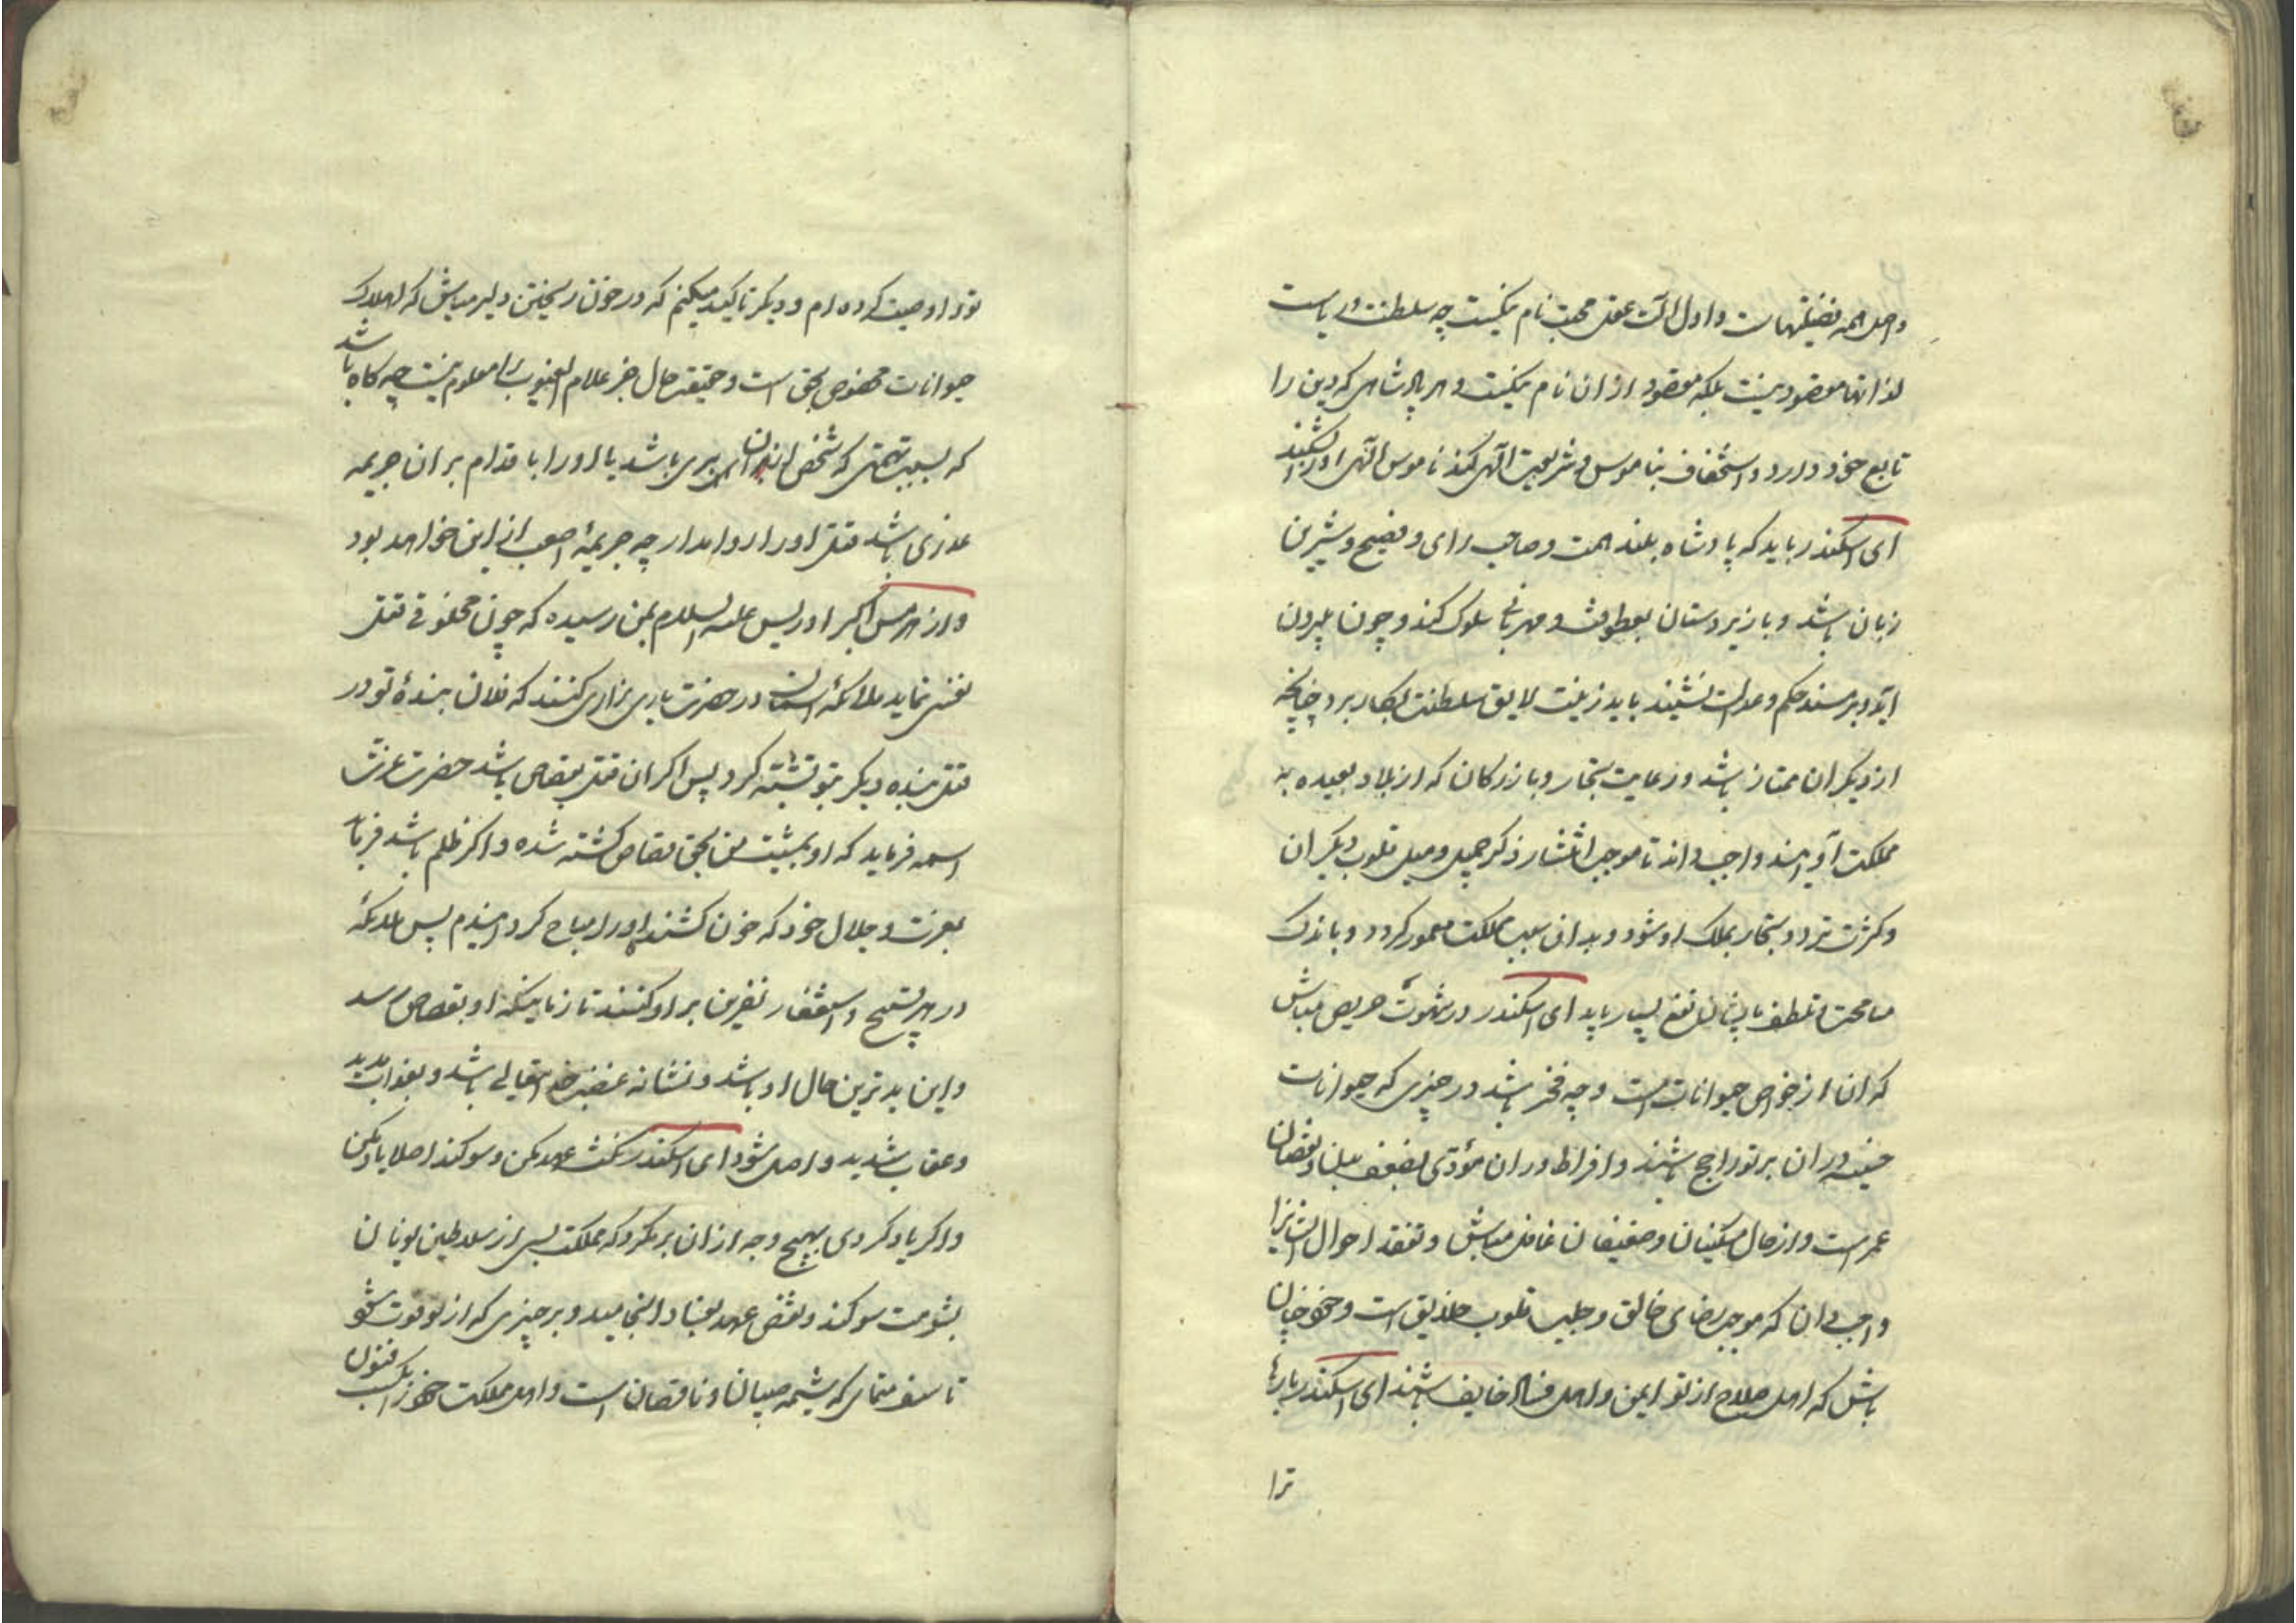 واصل همه فضیلتهاست واول آلت عقل محبت نام نیکیست چه سلطنت وریاست
لذاتها مقصود نیست بلکه مقصود ازان نام نیکیست و هر پادشاهی که دین را
تابع خود دارد و استخفاف بناموس و شریعت الهی کند ناموس الهی اورا بشکند
ای اسکندر باید که پادشاه بلند همت و صاحب رای و فصیح و شیرین
زبان باشد و با زیردستان بعطوفت و مهربانی سلوک کند و چون بیرون
آید و بر مسند حکم و عدالت نشیند باید زینت لایق سلطنت بکار برد چنانچه
از دیگران ممتاز باشد و رعایت تجار و بازرکانان که از بلاد بعیده به
مملکت او آیند واجب داند تا موجب انتشار ذکر جمیل و میل قلوب دیگران
و کثرت تردد تجار بملک او شود و بدان سبب مملکت معمور کردد و باندک
مسامحت و تلطف بایشان نفع بسیار یابد ای اسکندر در شهوت حریص مباش
که ان از خواص حیوانات است و چه فخر باشد در چیزی که حیوانات
خسیسه دران بر تو راجح باشند و افراط دران مؤدی بضعف بدن و نقصان
عمر است و از حال مسکینان و ضعیفان غافل مباش و تفقد احوال ایشانرا
واجب دان که موجب رضای خالق و جلب قلوب خلایق است و خود چنان
باش که اهل صلاح از تو ایمن و اهل فساد خایف باشند ای اسکندر بارها
ترا
تورا وصیت کرده ام و دیگر تاکید میکنم که در خون ریختن دلیر مباش که اهلاک
حیوانات مخصوص بحق است و حقیقت حال جز علام الغیوب را معلوم نیست چه کاه باشد
که بسبب تهمتی که شخص ازان بری باشد یا اورا باقدام بران جریمه
عذری باشد قتل اورا روا مدار چه جریمهٔ اصعب ازین نخواهد بود
و از هرمس اکبر ادریس علیه السلام بمن رسیده که چون مخلوقی قتل
نفسی نماید ملائکهٔ آسمان در حضرت باری زاری کنند که فلان بندهٔ تو در
قتل بندهٔ دیگر بتو تشبه کرد پس اکر ان قتل بقصاص باشد حضرت عزت
اسمه فرماید که او بمشیت من بحق قصاص کشته شده و اکر ظلم باشد فرماید
بعزت و جلال خود که خون کشندهٔ اورا مباح کردانیدم پس ملائکهٔ
در هر تسبیح و استغفار نفرین بر او کنند تا زمانیکه او بقصاص رسد
و این بدترین حال او باشد و نشانهٔ غضب خدایتعالی باشد و بعذاب مدید
و عقاب شدید واصل شود ای اسکندر نکث عهد مکن و سوکند اصلا یاد مکن
و اکر یاد کردی بهیچ وجه ازان برمکرد که مملکت بسی از سلاطین یونان
بشومت سوکند و نقض عهد بفساد انجامید و بر چیزی که از تو فوت شود
تاسف منمای که شیمه صبیان و ناقصان است و اهل مملکت خود را بکسب فنون